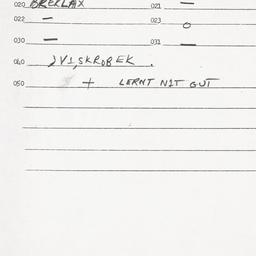 020 BREKLAX 021 —
022 — 023 o
030 — 031 —
040 JVI,SKROBEK .
050 + LERNT NIT GUT